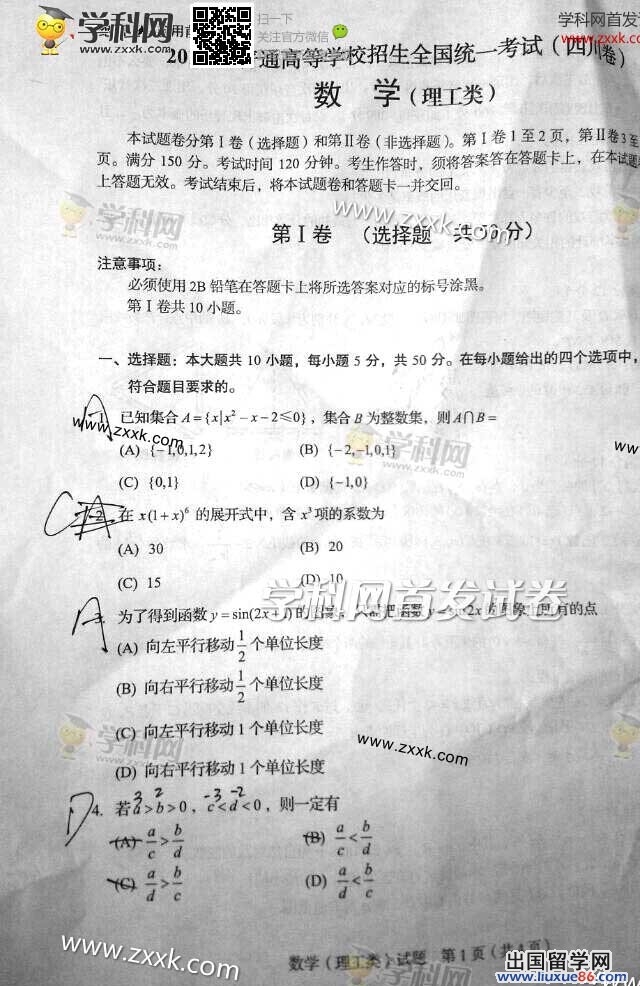 扫一下
关注官方微信
学科网首发
www.zxxk.com
普通高等学校招生全国统一考试(四川卷)
数 学(理工类)
本试题卷分第Ⅰ卷(选择题)和第Ⅱ卷(非选择题)。第Ⅰ卷1至2页,第Ⅱ卷3至
页。满分150分。考试时间120分钟。考生作答时,须将答案答在答题卡上,在本试题
上答题无效。考试结束后,将本试题卷和答题卡一并交回。
学科网
www.zxxk.com
第Ⅰ卷 (选择题 共50分)
注意事项:
必须使用2B铅笔在答题卡上将所选答案对应的标号涂黑。
第Ⅰ卷共10小题。
一、选择题:本大题共10小题,每小题5分,共50分。在每小题给出的四个选项中,
符合题目要求的。
A 1. 已知集合A={x|x²-x-2≤0},集合B为整数集,则A∩B=
www.zxxk.com
学科网
(A) {-1,0,1,2} (B) {-2,-1,0,1}
(C) {0,1} (D) {-1,0}
C 2. 在x(1+x)⁶的展开式中,含x³项的系数为
(A) 30 (B) 20
(C) 15 (D) 10
学科网首发试卷
A 为了得到函数y=sin(2x+1)的图象,只需把函数y=sin2x的图象上所有的点
(A) 向左平行移动1/2个单位长度
(B) 向右平行移动1/2个单位长度
(C) 向左平行移动1个单位长度
学科网
www.zxxk.com
(D) 向右平行移动1个单位长度
3 2 -3 -2
D 4. 若a>b>0,c<d<0,则一定有
(A) a/c>b/d (B) a/c<b/d
(C) a/d>b/c (D) a/d<b/c
www.zxxk.com
数学(理工类)试题 第1页(共4页)
出国留学网
www.liuxue86.com